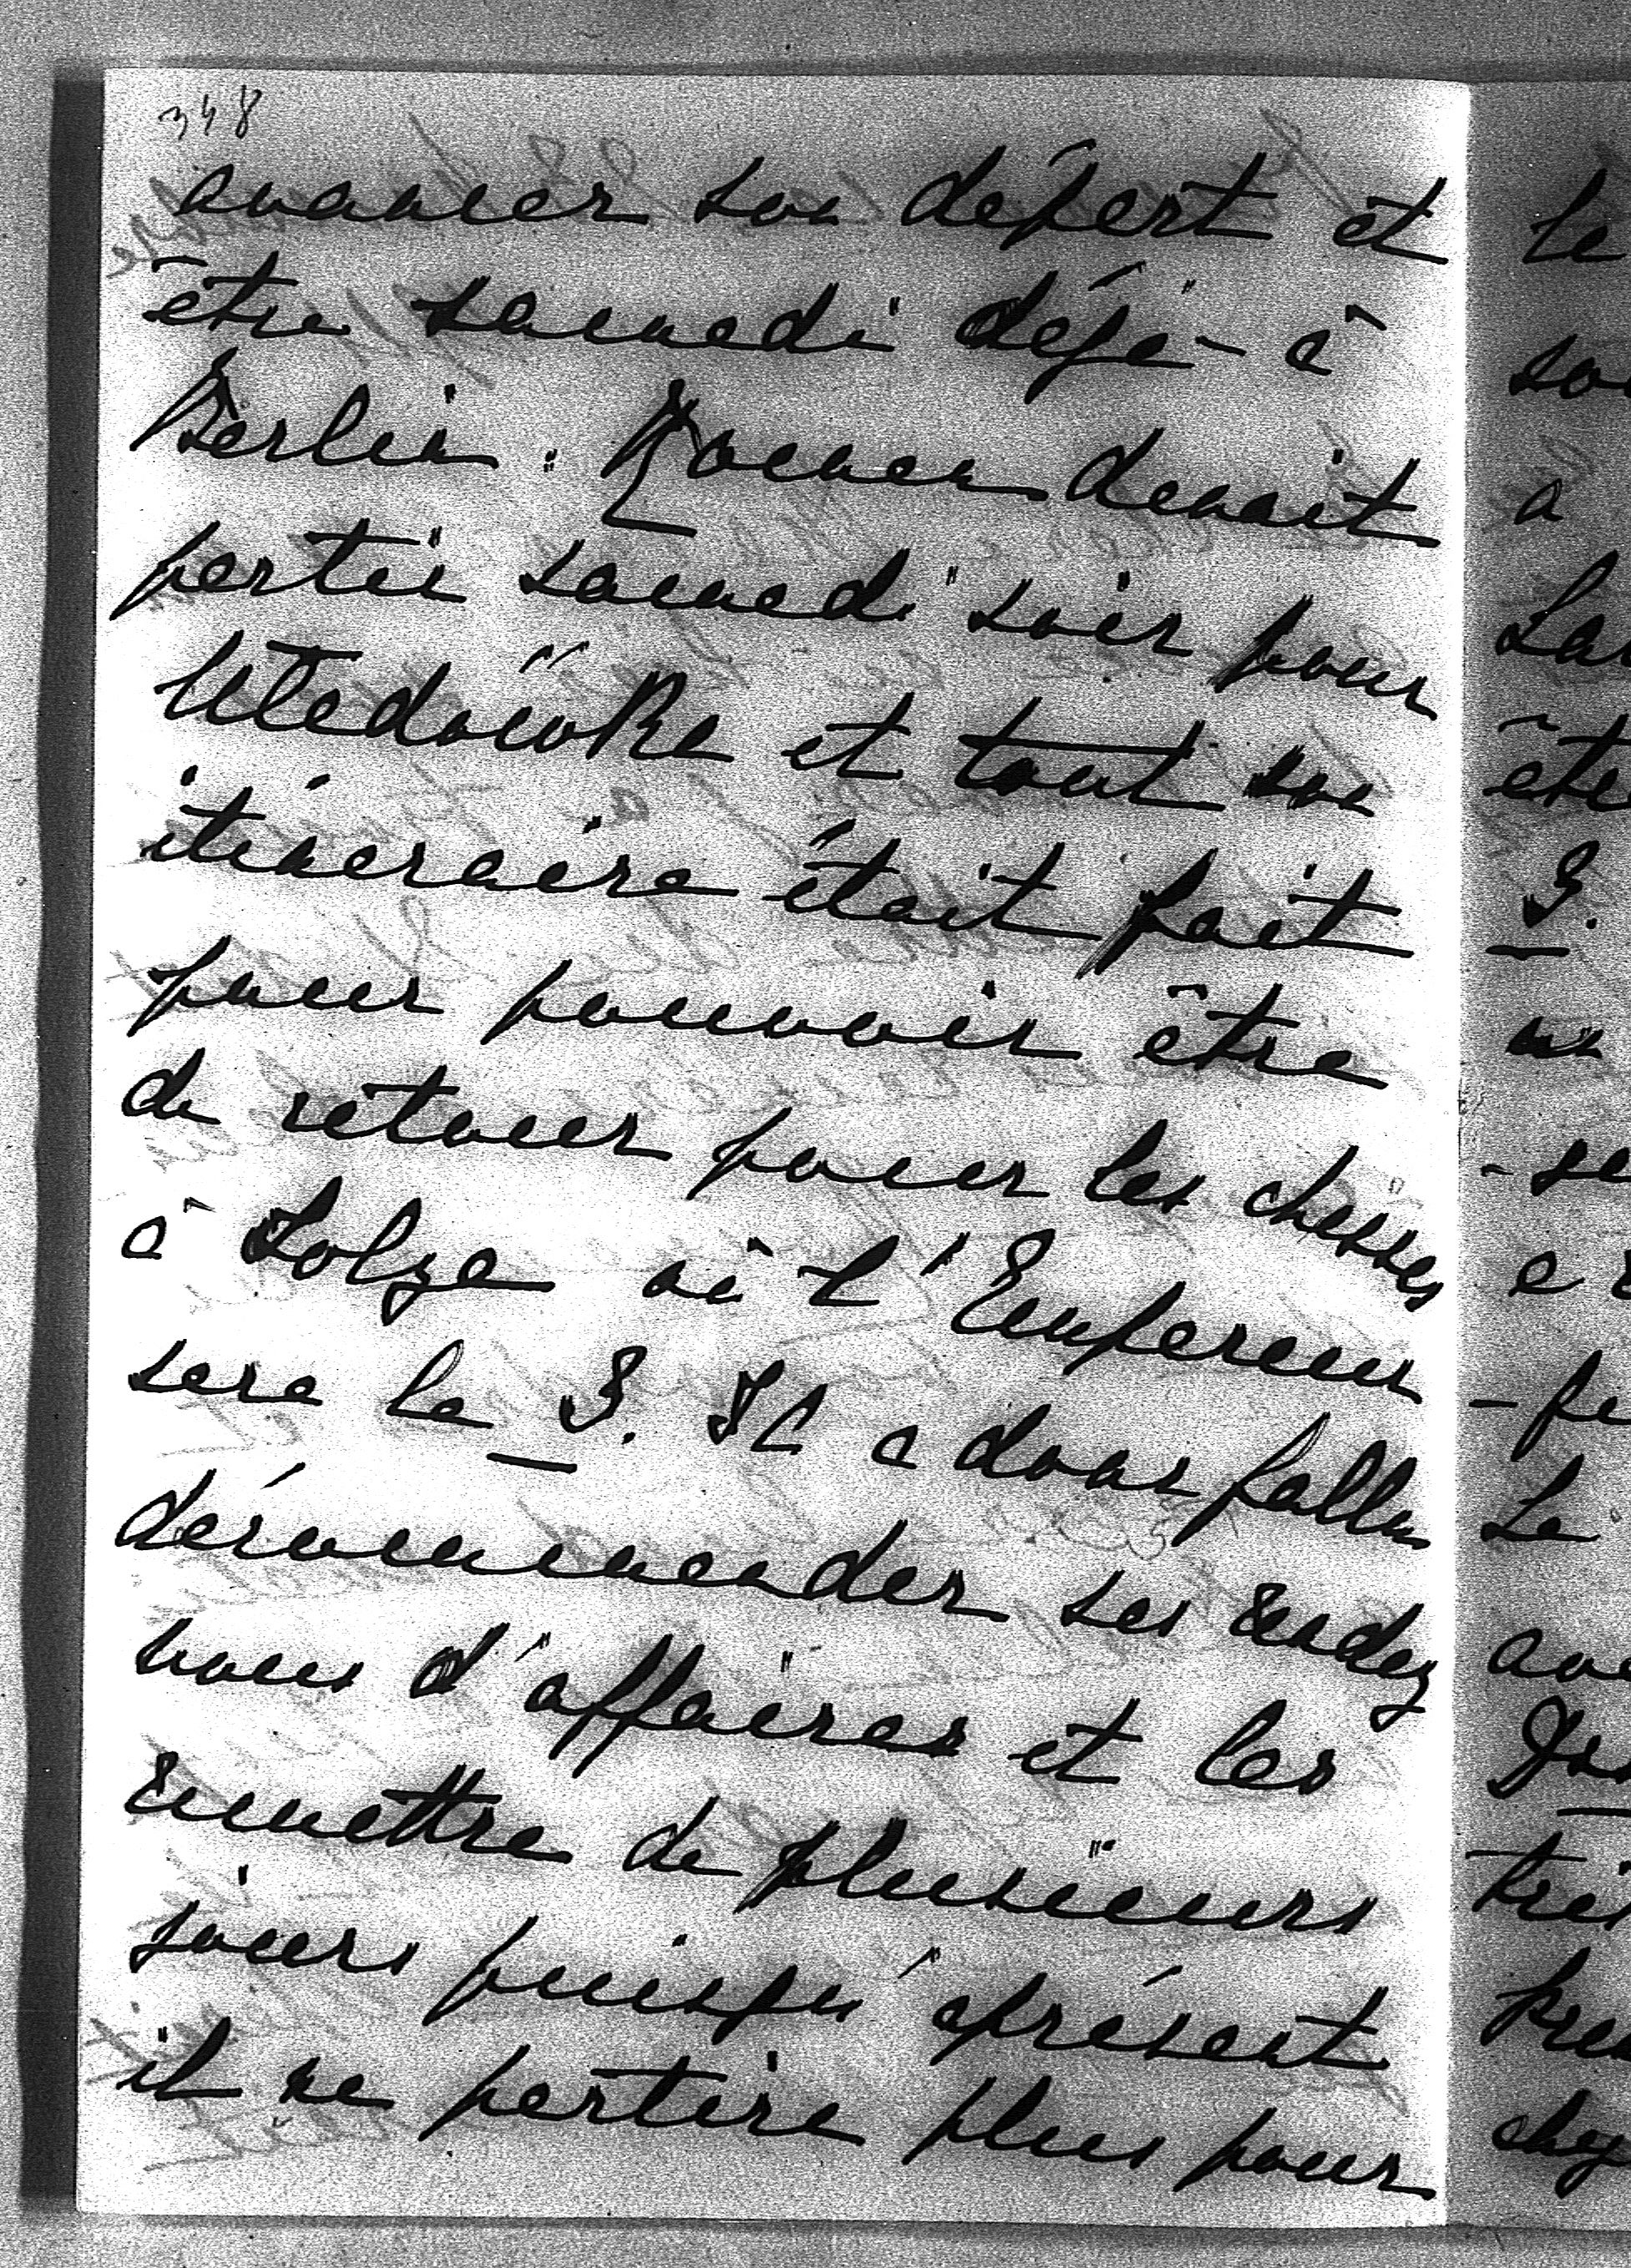 348
avancer son départ et
être samedi déjà à
Berlin. Roman devait
partir samedi soir pour
et tout son
itinéraire était fait
pour pouvoir être
de retour pour les chasses
à où l'Empereur
sera le 3. Il a donc fallu
décommander ses rendez
vous d'affaires et les
remettre de plusieurs
jours puisqu'àprésent
il ne partira plus pour